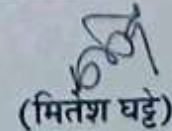 (मितेश घट्टे)